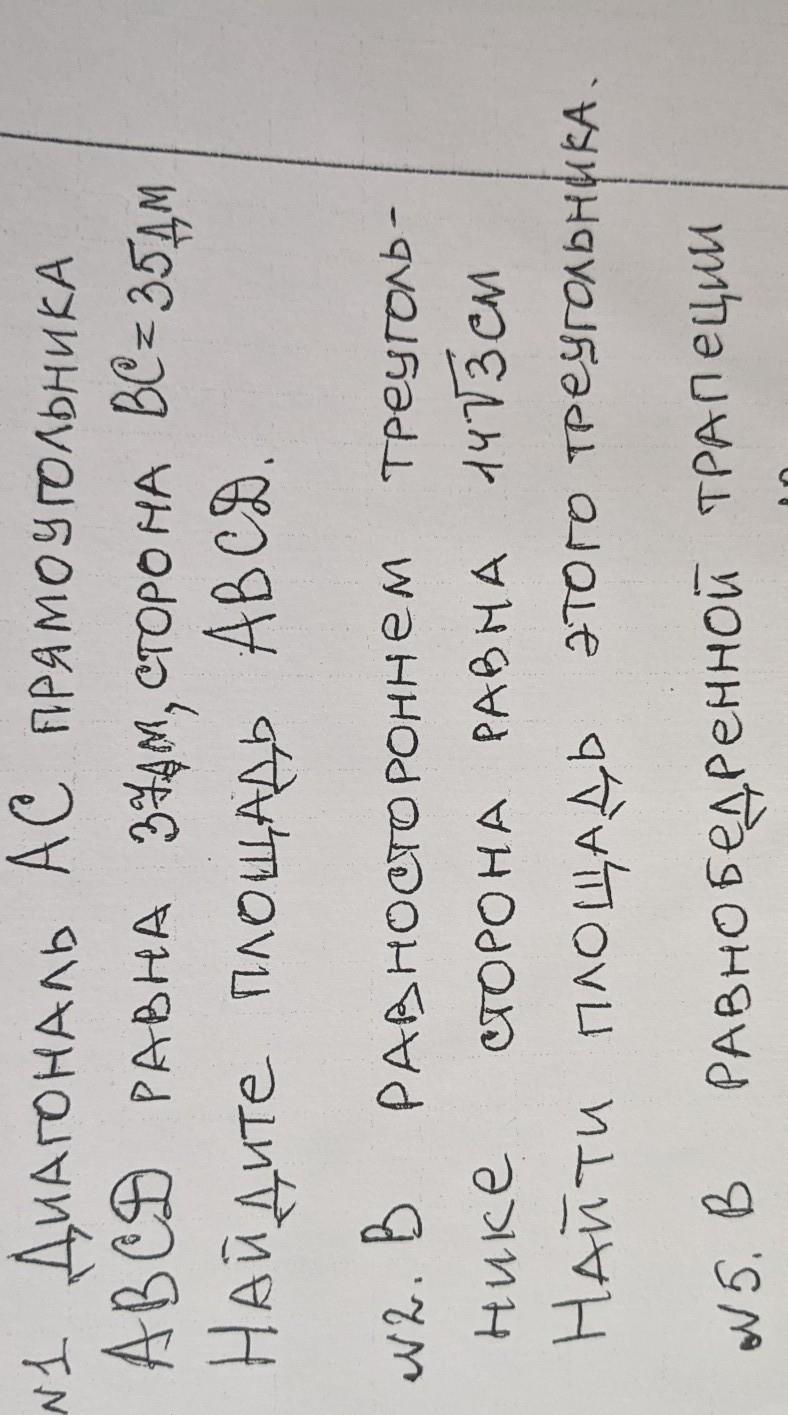 №1 Диагональ АС прямоугольника
АВСД равна 37дм, сторона ВС=35дм
Найдите площадь АВСД.
№2. В равностороннем треуголь-
нике сторона равна 14√3см
Найти площадь этого треугольника.
№5. В равнобедренной трапеции